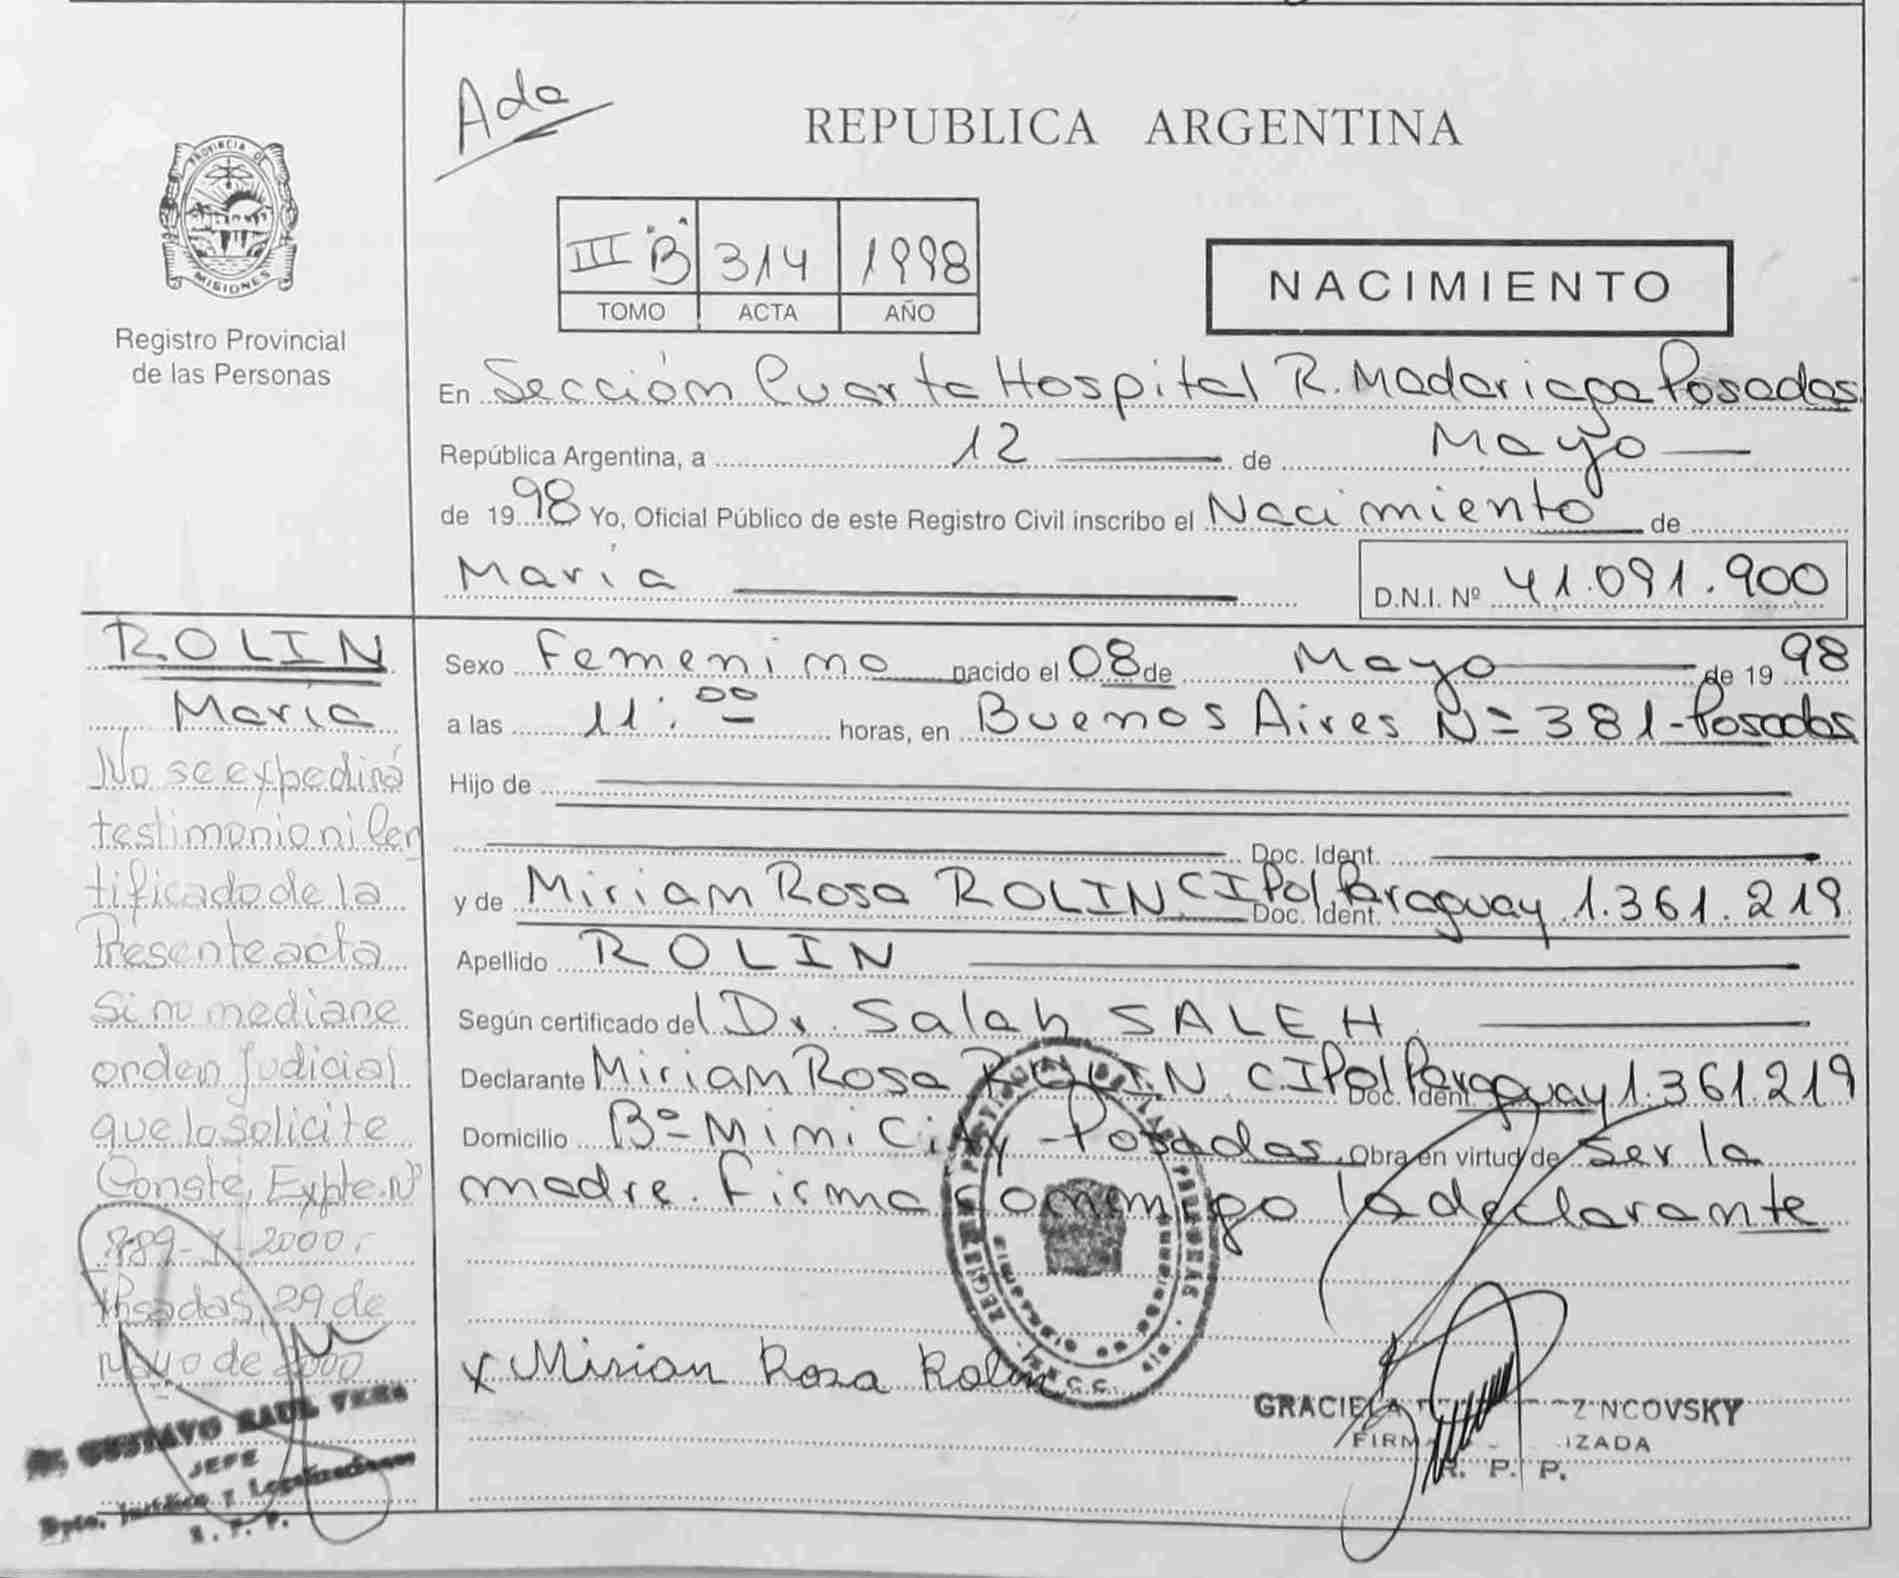 Ada
REPUBLICA ARGENTINA
PROVINCIA DE
MISIONES
Registro Provincial
de las Personas
III "B" 314 1998
TOMO ACTA AÑO
NACIMIENTO
En Sección Cuarta Hospital R. Madariaga Posadas
República Argentina, a 12 de Mayo
de 1998 Yo, Oficial Público de este Registro Civil inscribo el Nacimiento de
María D.N.I. Nº 41.091.900
ROLIN
María
No se expedirá
testimonio ni Cer
tificado de la
Presente acta
Si no mediane
orden Judicial
que lo solicite
Conste, Expte. Nº
2000
Posadas, 29 de
mayo de 2000
GUSTAVO RAUL VERA
JEFE
Dpto. Jurídico y Legalizaciones
R. P. P.
Sexo Femenino nacido el 08 de Mayo de 1998
a las 11:00 horas, en Buenos Aires Nº 381-Posadas
Hijo de
Doc. Ident.
y de Miriam Rosa ROLIN CI Pol Paraguay 1.361.219 Doc. Ident.
Apellido ROLIN
Según certificado del Dr. Salah SALEH
Declarante Miriam Rosa ROLIN C.I Pol Paraguay 1.361.219 Doc. Ident.
Domicilio Bº Mini City - Posadas. Obra en virtud de Ser la
madre. Firma conmigo la declarante
x Mirian Rosa Rolin
GRACIELA
FIRMA
R. P. P.